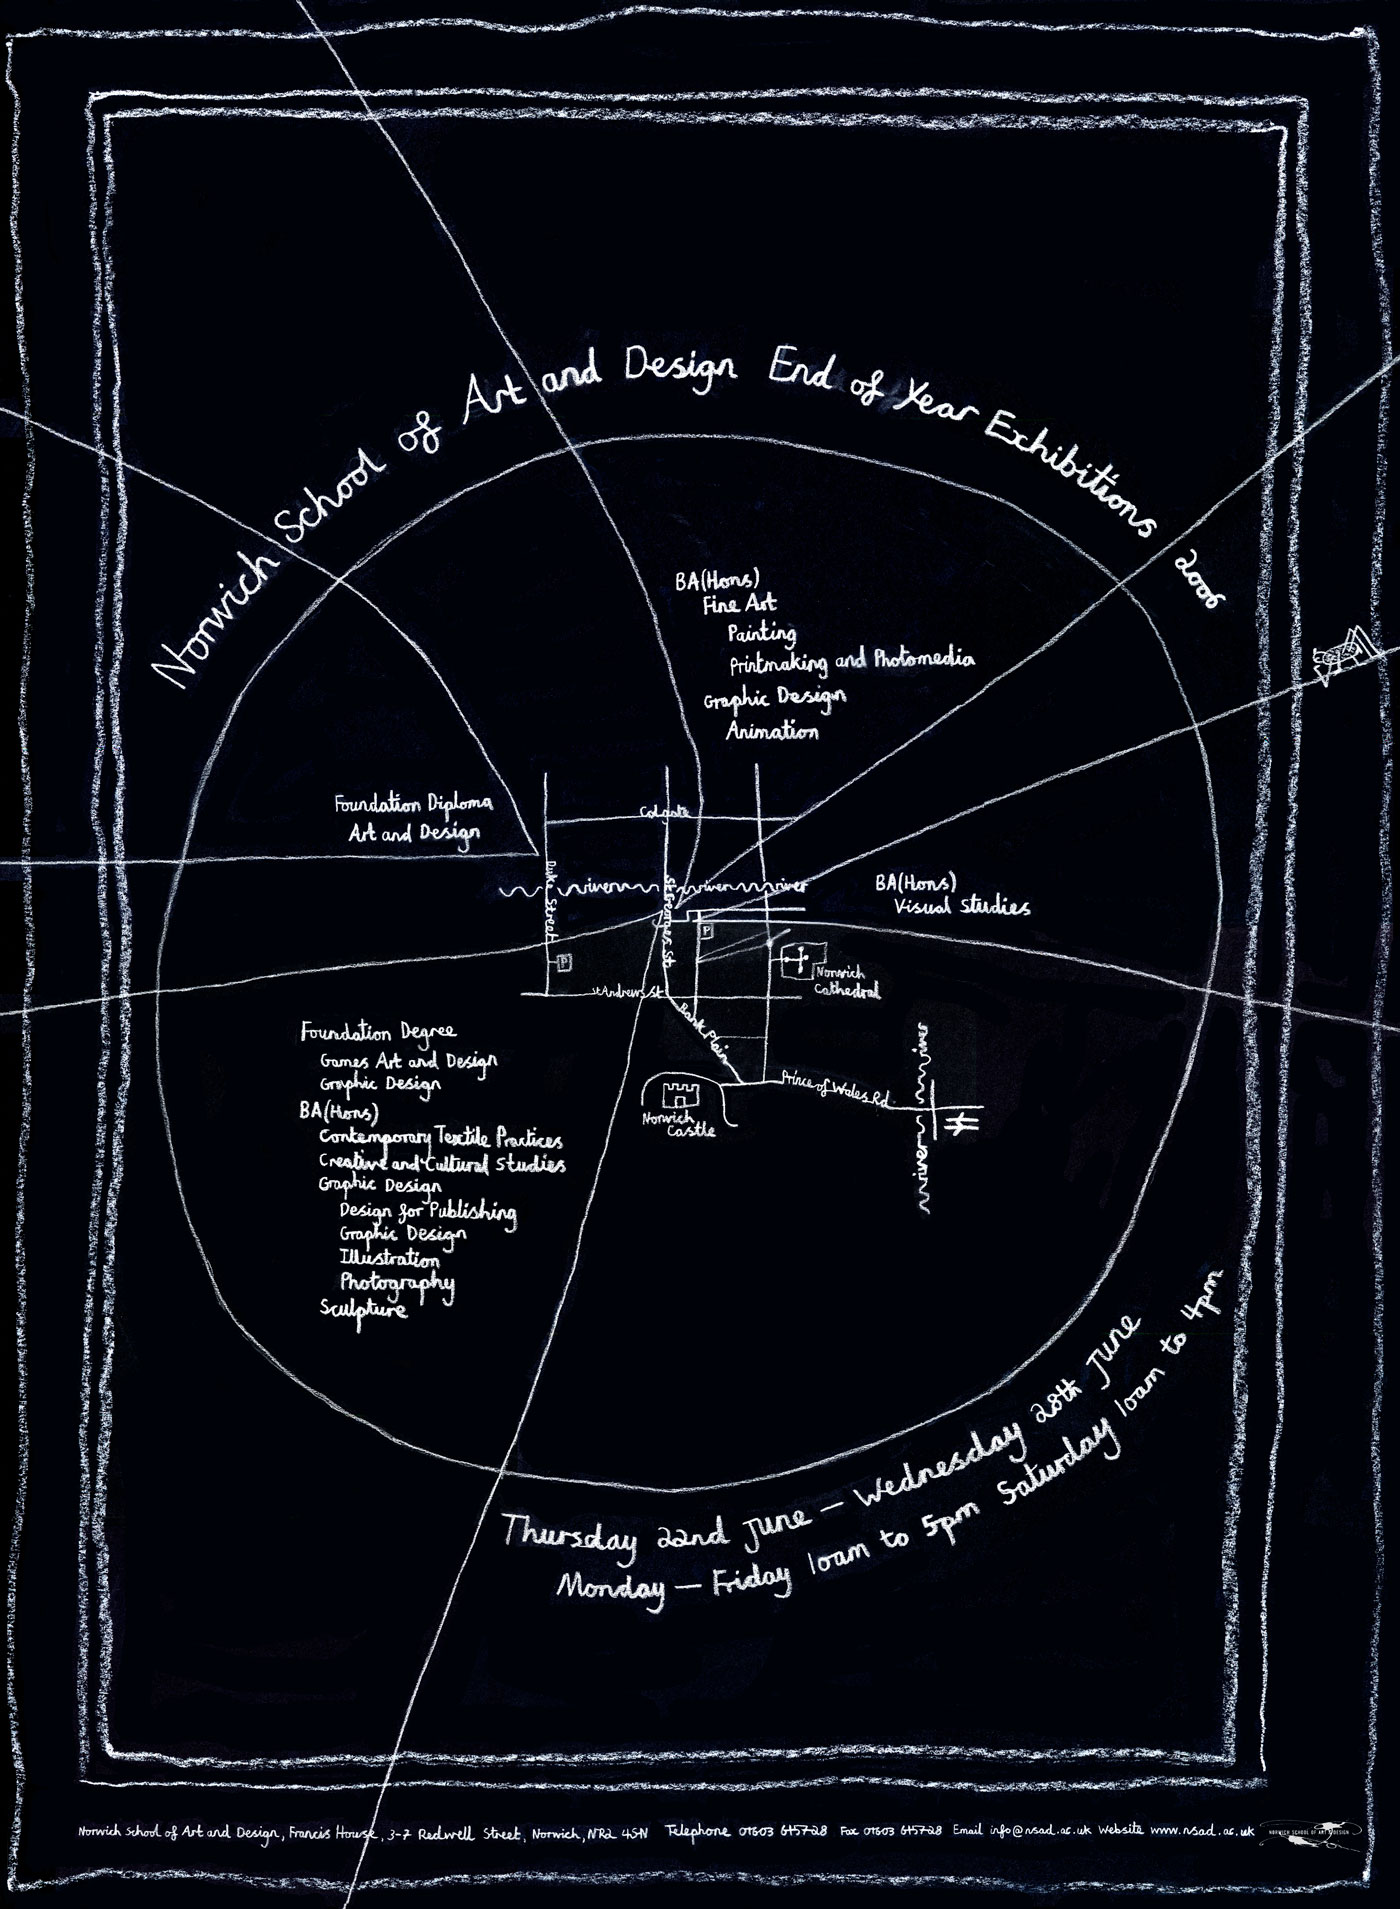 Norwich School of Art and Design End of Year Exhibitions 2006
BA(Hons)
Fine Art
Painting
Printmaking and Photomedia
Graphic Design
Animation
Foundation Diploma
Art and Design
Colgate
Duke Street
river
St Georges St
river
river
BA(Hons)
Visual Studies
P
P
Norwich
Cathedral
St Andrews St
Bank Plain
Prince of Wales Rd
river
river
Norwich
Castle
Foundation Degree
Games Art and Design
Graphic Design
BA(Hons)
Contemporary Textile Practices
Creative and Cultural Studies
Graphic Design
Design for Publishing
Graphic Design
Illustration
Photography
Sculpture
Thursday 22nd June – Wednesday 28th June
Monday – Friday 10am to 5pm Saturday 10am to 4pm
Norwich School of Art and Design, Francis House, 3-7 Redwell Street, Norwich, NR2 4SN Telephone 01603 615728 Fax 01603 615728 Email info@nsad.ac.uk Website www.nsad.ac.uk
NORWICH SCHOOL OF ART & DESIGN